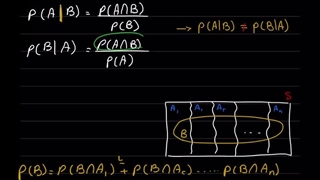 P(A|B) = P(A∩B) / P(B) → P(A|B) ≠ P(B|A)
P(B|A) = P(A∩B) / P(A)
S
A₁ A₂ A₃ Aₙ
B ...
P(B) = P(B∩A₁) + P(B∩A₂) ..... P(B∩Aₙ)